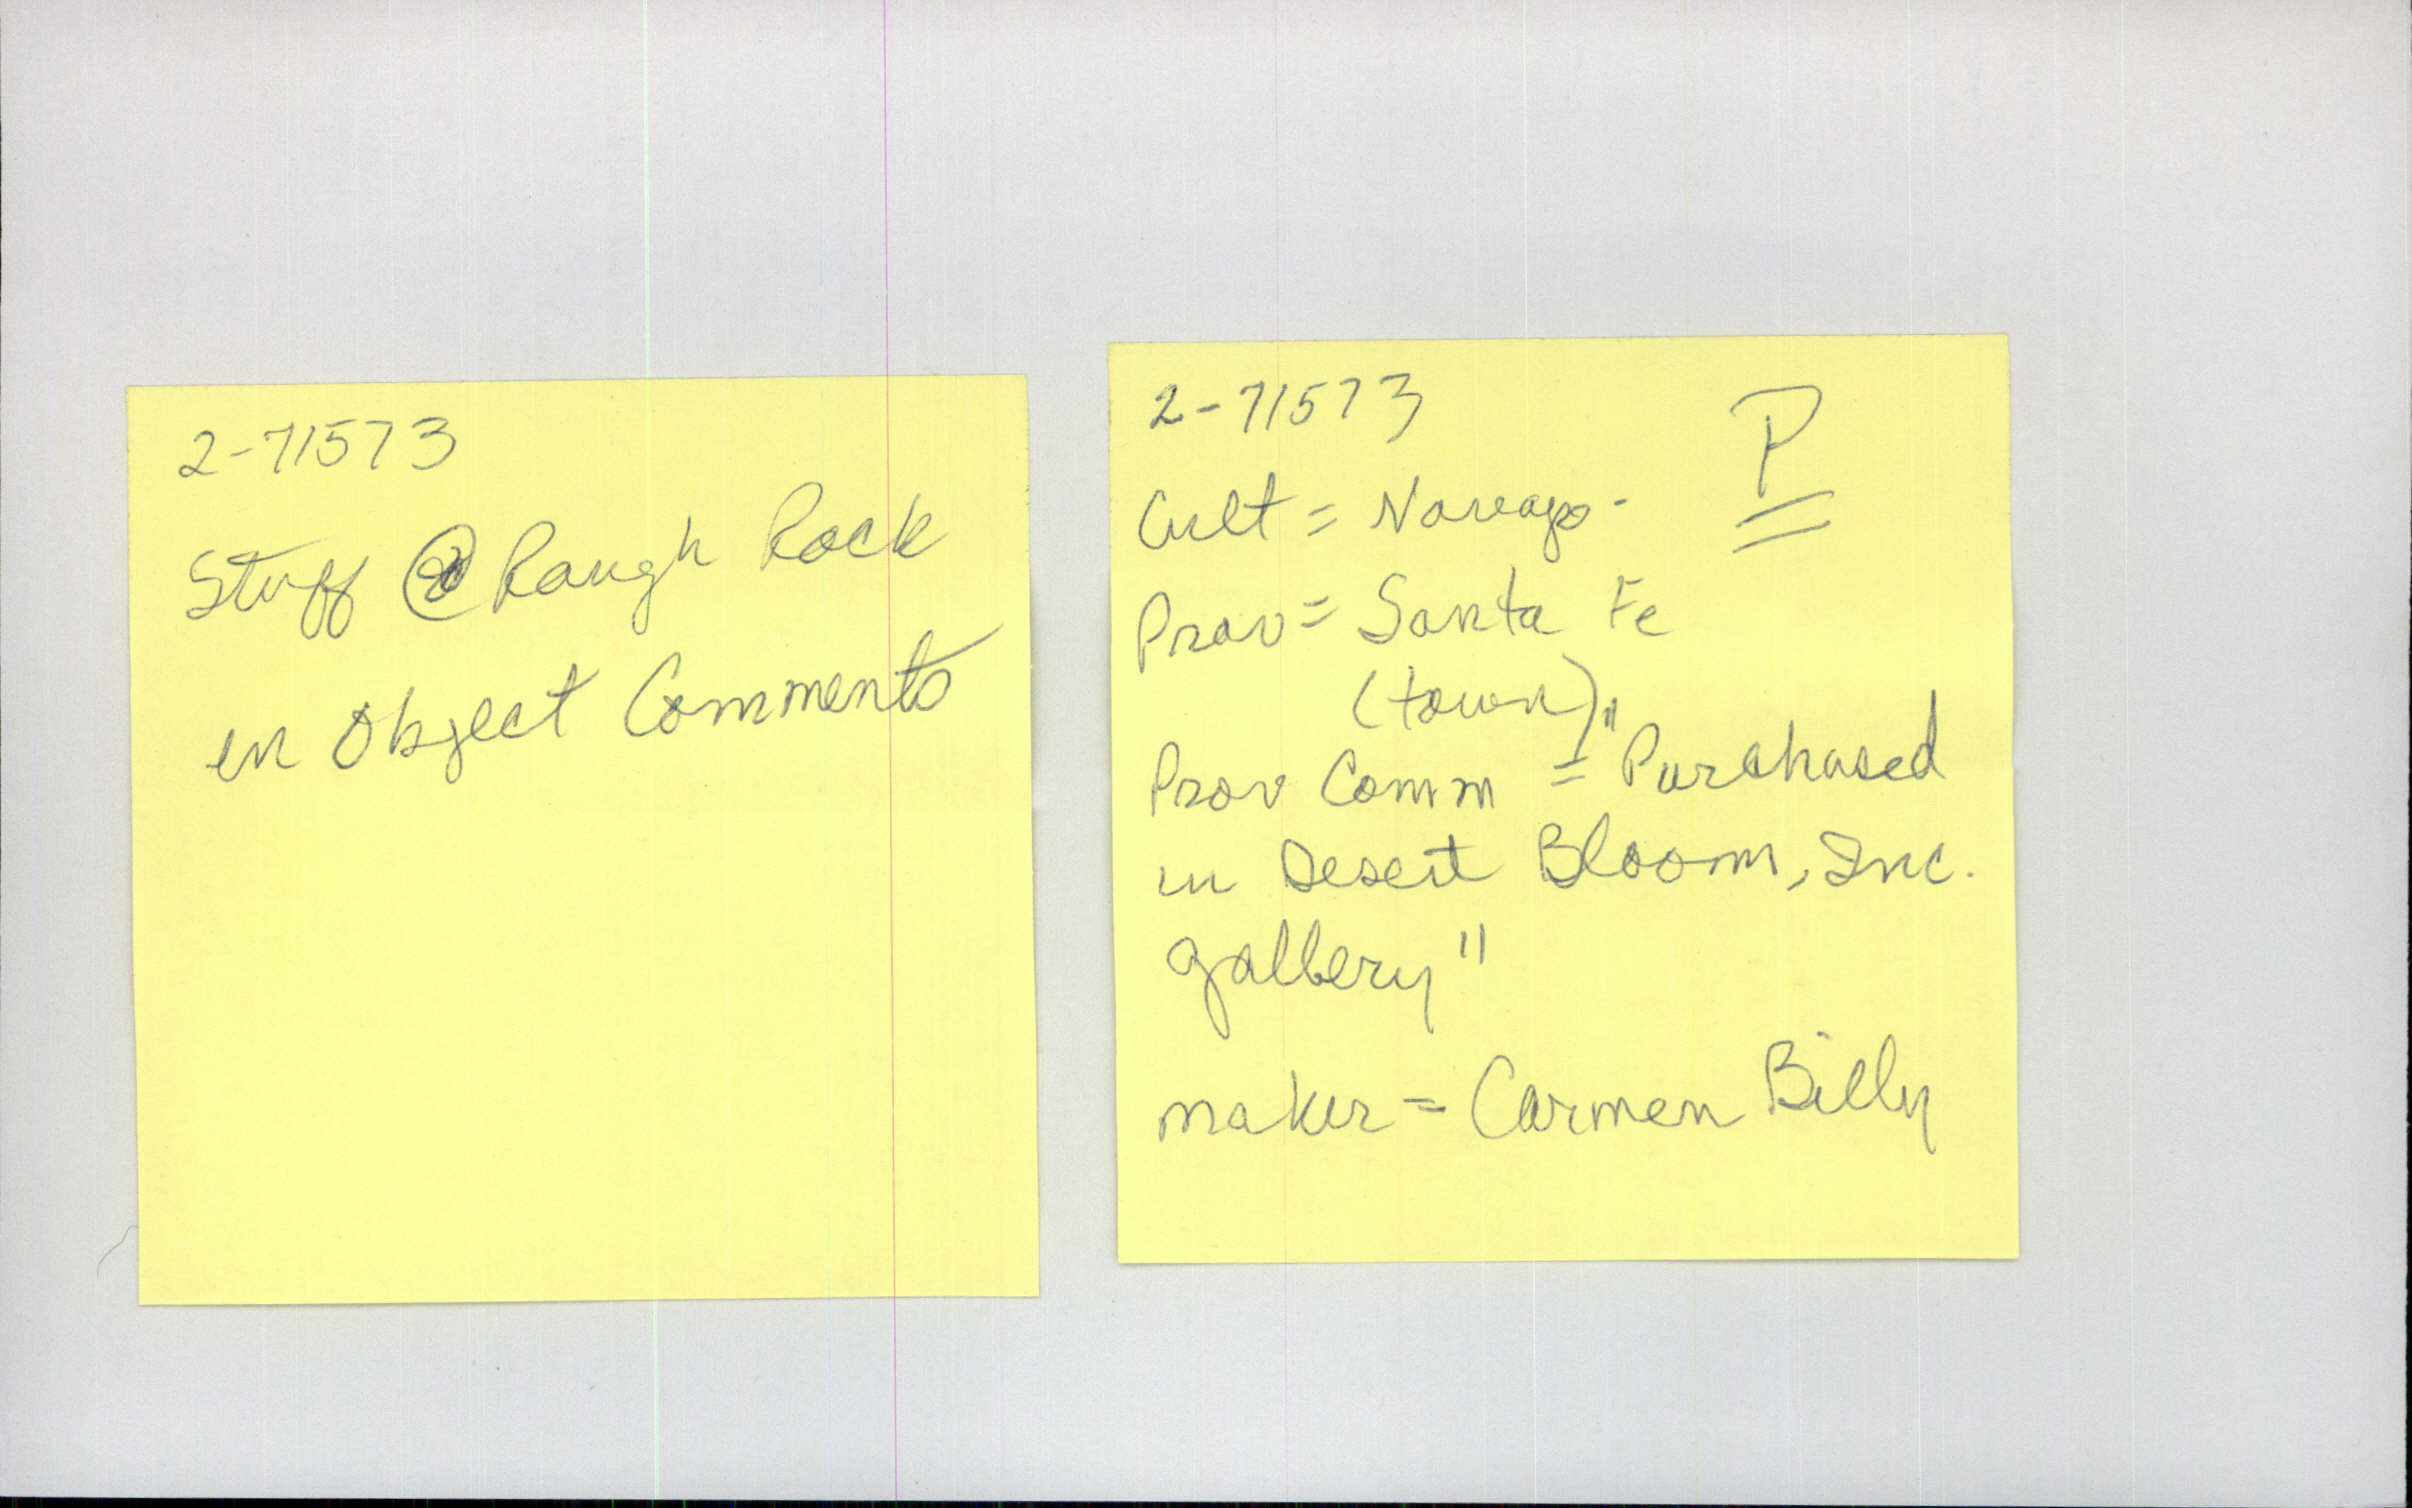 2-71573
Stuff @ Rough Rock
in Object Comments
2-71573
P
Cult = Navajo -
Prov = Santa Fe
(town)
Prov Comm = "Purchased
in Desert Bloom, Inc.
gallery"
maker = Carmen Billy